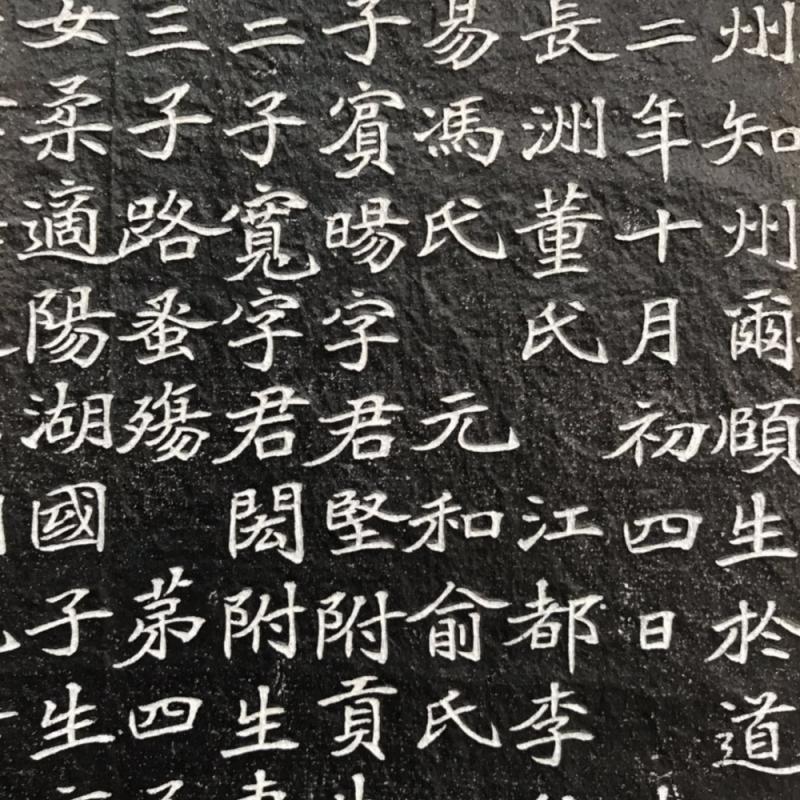 州知州爾頤生於道
二年十月初四日
長洲董氏　江都李
易馮氏　元和俞氏
子賓暘字君堅附貢生
二子寬字君閎附生
三子路蚤殤　苐四子
女柔適陽湖國子生